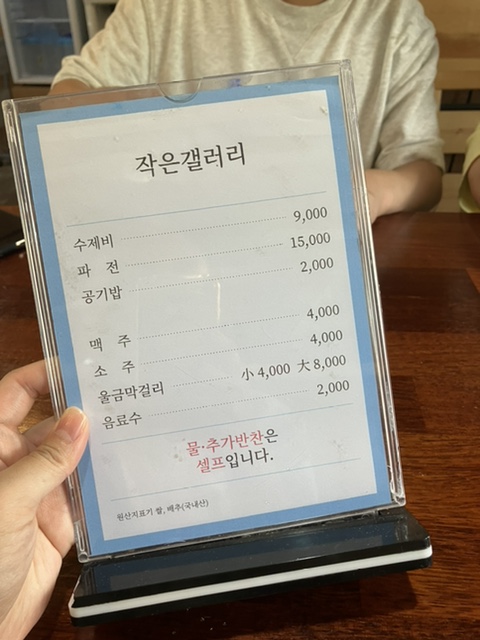 작은갤러리
수제비 9,000
파 전 15,000
공기밥 2,000
맥 주 4,000
소 주 4,000
울금막걸리 小 4,000 大 8,000
음료수 2,000
물·추가반찬은
셀프입니다.
원산지표기 쌀, 배추(국내산)